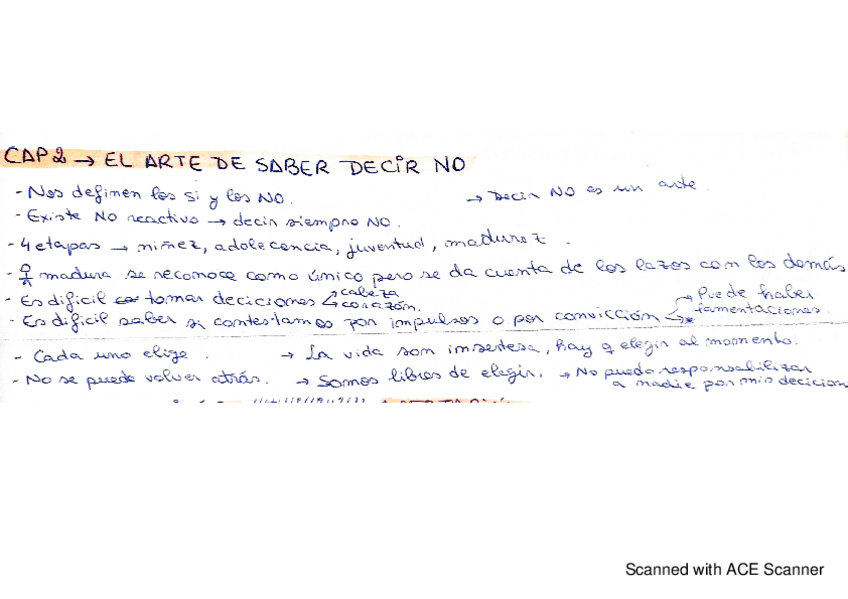 CAP 2 → EL ARTE DE SABER DECIR NO
- Nos definen los si y los NO. → Decir NO es un arte.
- Existe NO reactivo → decir siempre NO.
- 4 etapas → niñez, adolecencia, juventud, madurez.
- madura se reconoce como único pero se da cuenta de los lazos con los demás
- Es dificil tomar deciciones cabeza corazón.
- Es dificil saber si contestamos por impulsos o por convicción → Puede haber lamentaciones.
- Cada uno elige. → La vida son , hay q elegir al momento.
- No se puede volver atrás. → Somos libres de elegir. → No puedo responsabilizar a nadie por mis decicion
Scanned with ACE Scanner